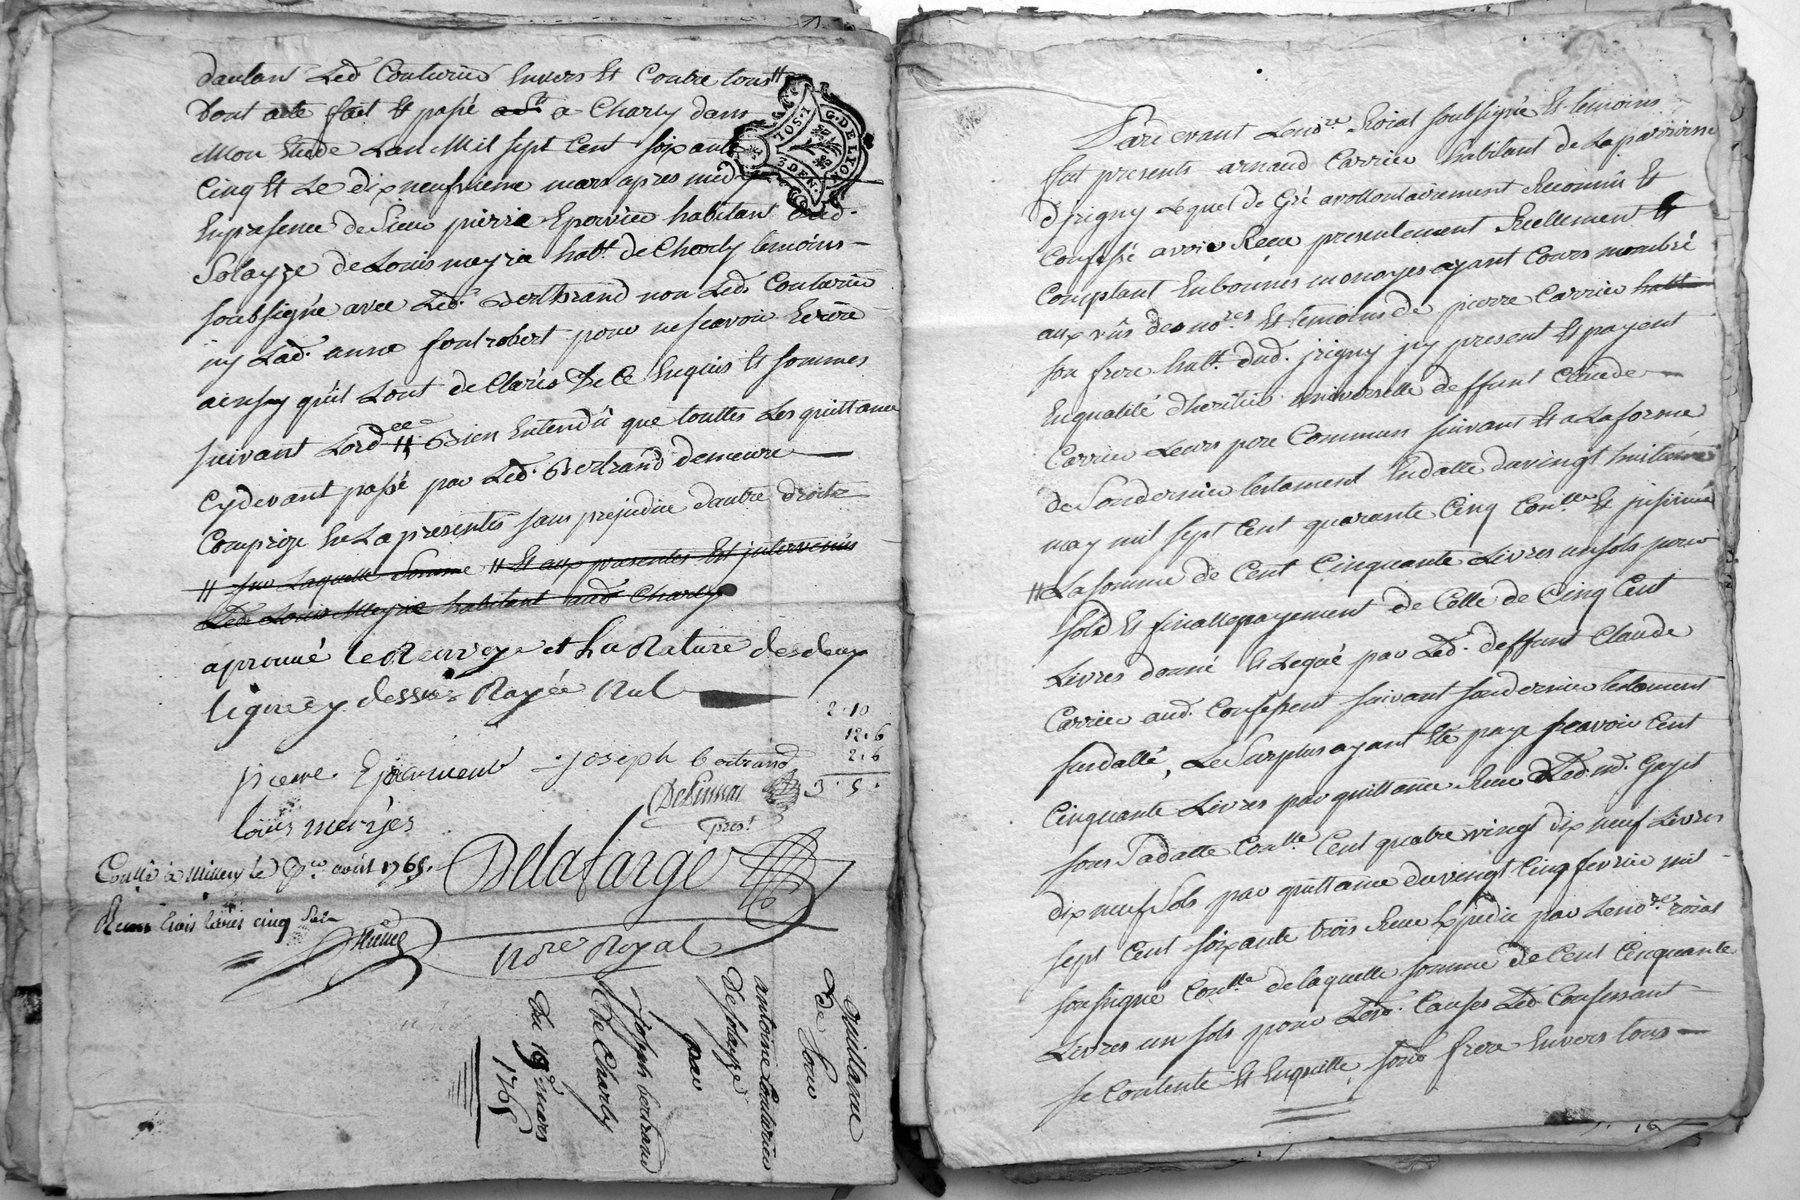 dautan Led Couturier Envers Et Contre tous #
Dont acte fait Et passé a Charly dans
Mon Etude Lan Mil sept Cent soixante
Cinq Et Le dix neufvieme mars apres midy
En presence de Sieur pierre Eparvier habitant
Solayze de Louis meyrie habt. de Charly temoins
soubsigné avec Led. Bertrand non Led. Couturier
ny Lad. anne fontrobert pour ne scavoir Ecrire
ainsy quil Lont declarés de Ce Enquis Et sommes
suivant Lord.ce Bien Entendû que touttes Les quittance
Cydevant passé par Led. Bertrand demeure
Comprize En La presentes sans prejudice dautre droits
# sur Laquelle Somme # Et aux presentes Est intervenüs
Led. Louis Meyrie habitant aud. Charly
aprouvé le Renvoye et La Rature des deux
ligne cy dessus Rayée Nul
2.10
12.6
2.6
3.5.
pierre Eparvieur joseph bertrand
louis meryes
prest
Conllé à Millery le août 1765.
Delafarge
Reçu trois livres cinq sols
nore Royal
Quittance
De Somme
antoine Couturier
De solayze
par
joseph bertrand
De Charly
Du 19e mars
1765
G. DE LYON
3. DEN.
Pardevant Le nore Roial soubsigné Et temoins
fut presents arnaud Carrier habitant de La parroisse
Djrigny Lequel de Gré a vollontairement Reconnû Et
Confessé avoir Receu presentement Reellement Et
Comptant En bonnes monoyes ayant Cours nombré
aux vûs des nores Et temoins de pierre Carrier habt
son frere habt. dud. jrigny jcy present Et payent
En qualité dheritier universelle deffunt Claude
Carrier Leurs pere Commun suivant Et a La forme
de Son dernier testament En datte du vingt huitieme
may mil sept Cent quarante Cinq Conllé Et insinué
# La somme de Cent Cinquante Livres un sols pour
sold Et finalle payement de Celle de Cinq Cent
Livres donné Et Legué par Led. deffunt Claude
Carrier aud. Confessent suivant son dernier testament
susdatté, Le Surplus ayant Eté payé scavoir Cent
Cinquante Livres par quittance Receu Led. nd. Gayet
sous sa datte Conllé Cent quatre vingt dix neuf Livres
dix neuf sols par quittance du vingt Cinq fevrier mil
sept Cent soixante trois Receu Expedié par Le nore roial
soussigné Conllé de laquelle somme de Cent Cinquante
Livres un sols pour Lesd. Causes Led. Confessant
se Contente Et En quitte sond. frere Envers tous